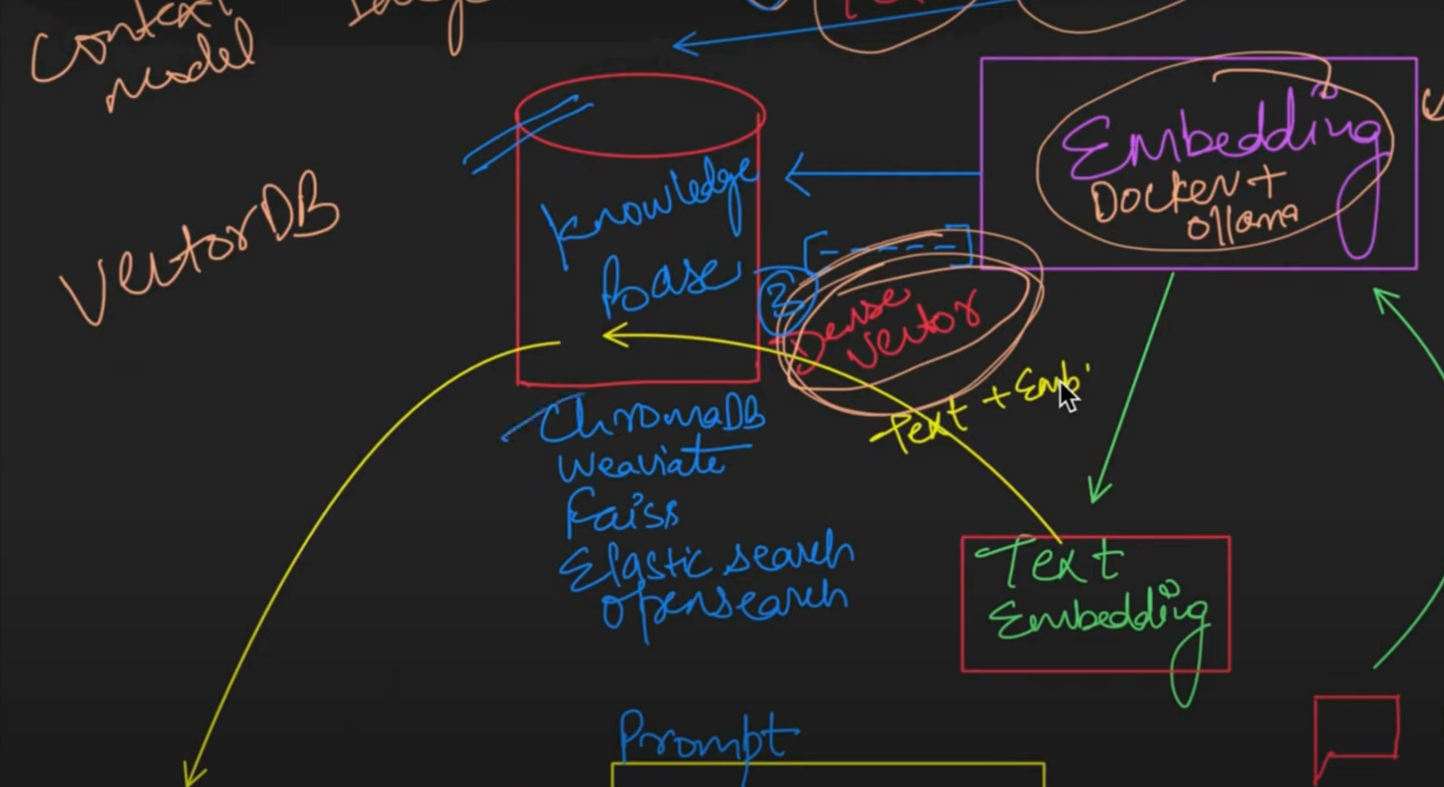 model
VectorDB
Knowledge
Base
Embedding
Docker +
Ollama
2
Dense
Vector
Text + Emb
ChromaDB
Weaviate
Faiss
Elastic search
Opensearch
Text
Embedding
Prompt